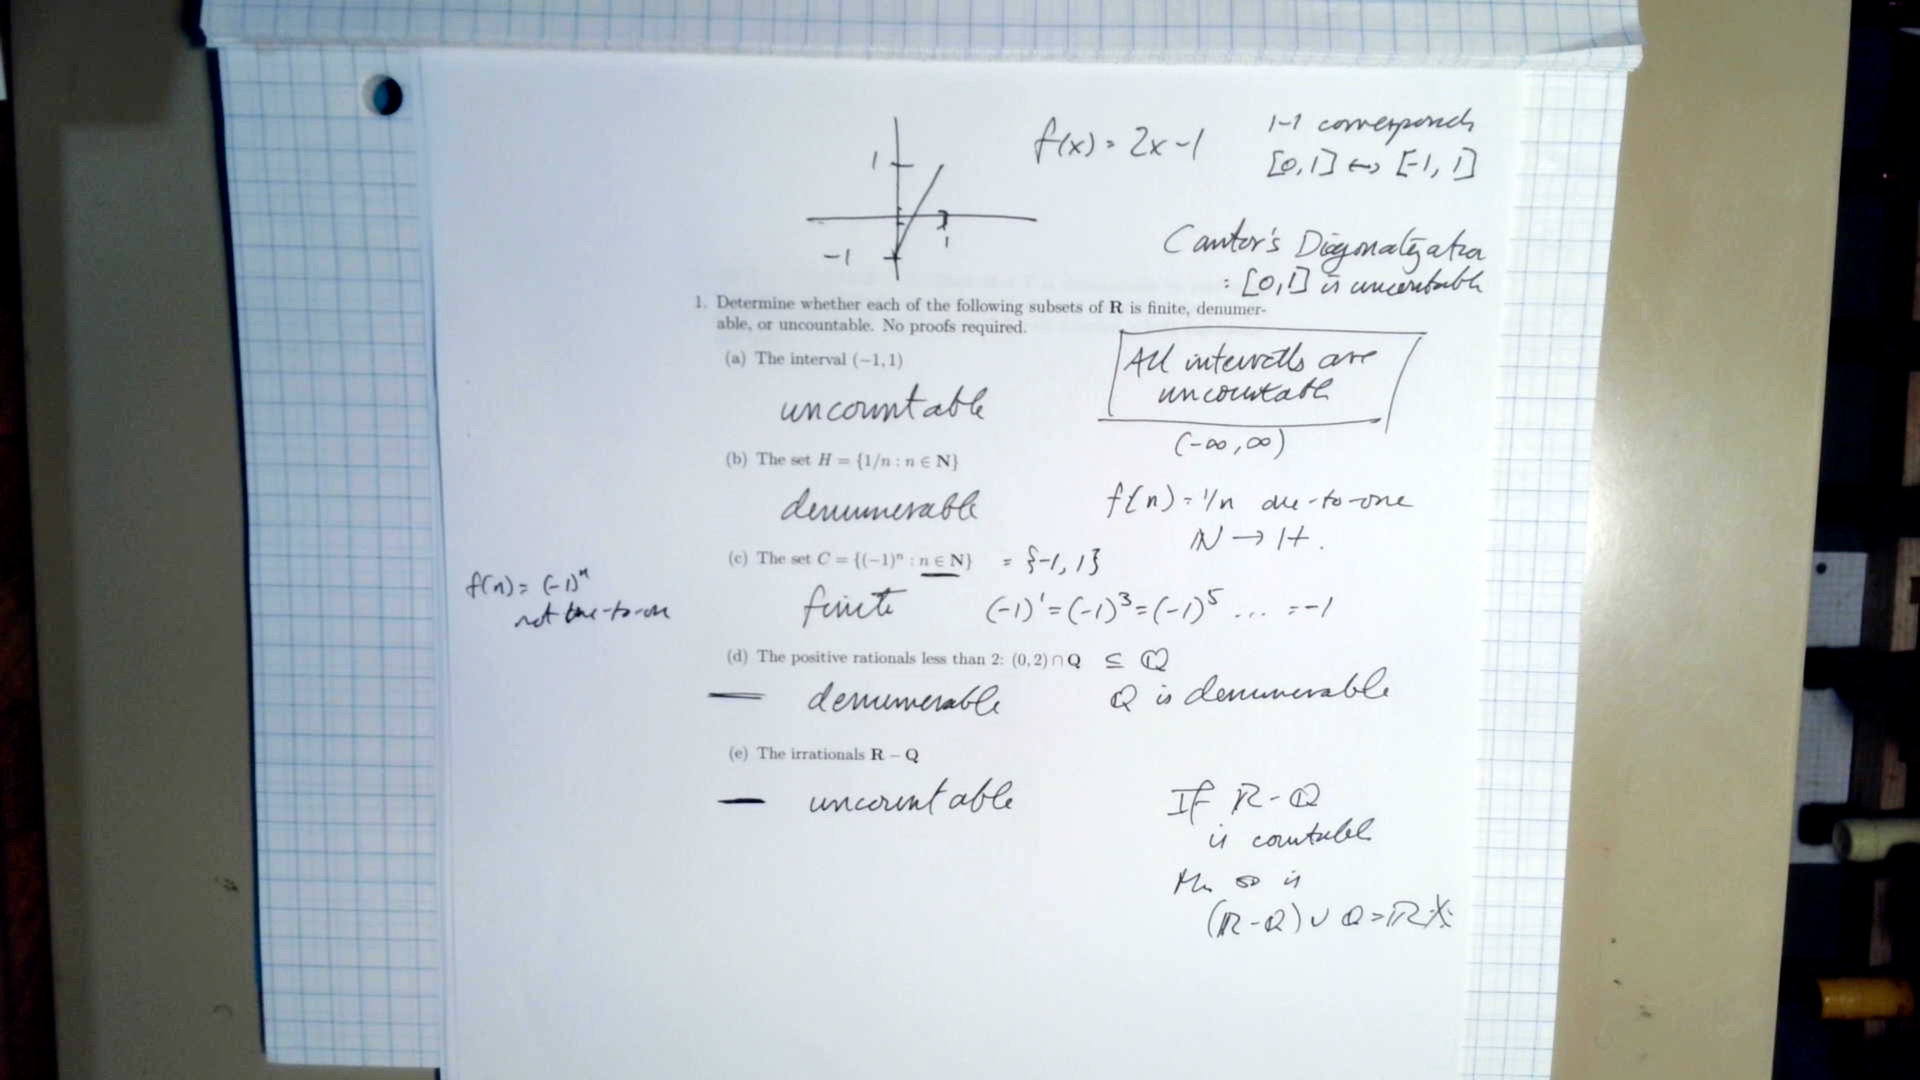 1
-1
1
f(x) = 2x-1
1-1 corresponds
[0,1] ↔ [-1, 1]
Cantor's Diagonalization
: [0,1] is uncountable
1. Determine whether each of the following subsets of R is finite, denumer-
able, or uncountable. No proofs required.
(a) The interval (−1, 1)
uncountable
All intervals are
uncountable
(-∞, ∞)
(b) The set H = {1/n : n ∈ N}
denumerable
f(n) = 1/n one-to-one
ℕ → H.
(c) The set C = {(−1)ⁿ : n ∈ N} = {-1, 1}
f(n) = (-1)ⁿ
not one-to-one
finite
(-1)¹ = (-1)³ = (-1)⁵ ... = -1
(d) The positive rationals less than 2: (0, 2) ∩ Q ⊆ ℚ
denumerable
Q is denumerable
(e) The irrationals R − Q
uncountable
If ℝ-ℚ
is countable
then so is
(ℝ-ℚ) ∪ ℚ = ℝ